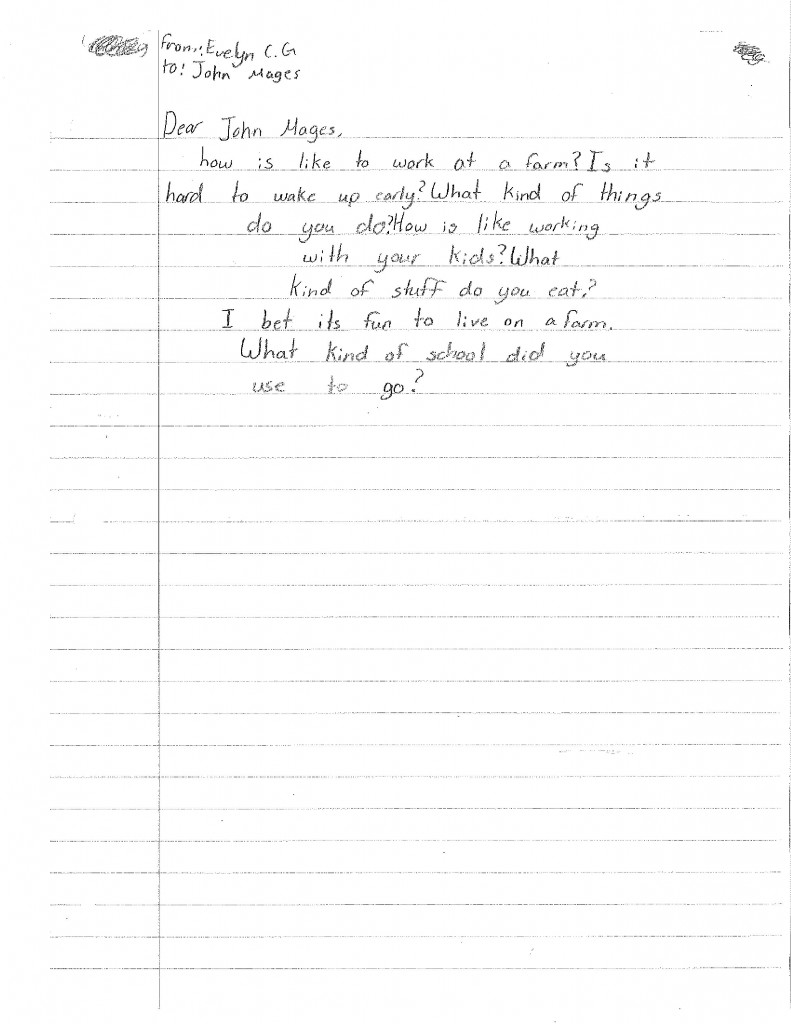 from: Evelyn C.G
to: John Mages
Dear John Mages,
how is like to work at a farm? Is it
hard to wake up early? What kind of things
do you do? How is like working
with your kids? What
kind of stuff do you eat?
I bet its fun to live on a farm.
What kind of school did you
use to go?